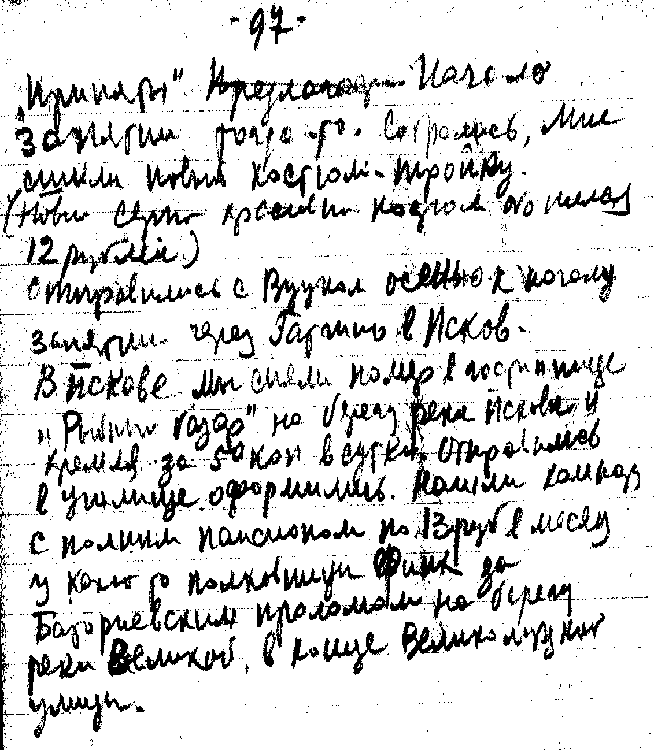 - 97 -
„Приняты" Начало
занятий тогда-то. Собрались, мне
сшили новый костюм-тройку.
(Новый серый красивый костюм
12 рублей.)
Отправились с Вуукол осенью к началу
занятий через Гатчино в Псков.
В Пскове мы сняли номер в гостиннице
„Рыбный базар" на берегу реки Псковы и
Кремля за 50 коп в сутки. Отправились
в училище, оформились. Нашли комнату
с полным пансионом по 13 руб в месяц
у какой то полковницы Финк за
Баториевским проломом на берегу
реки Великой, в конце Великолуцкой
улицы.